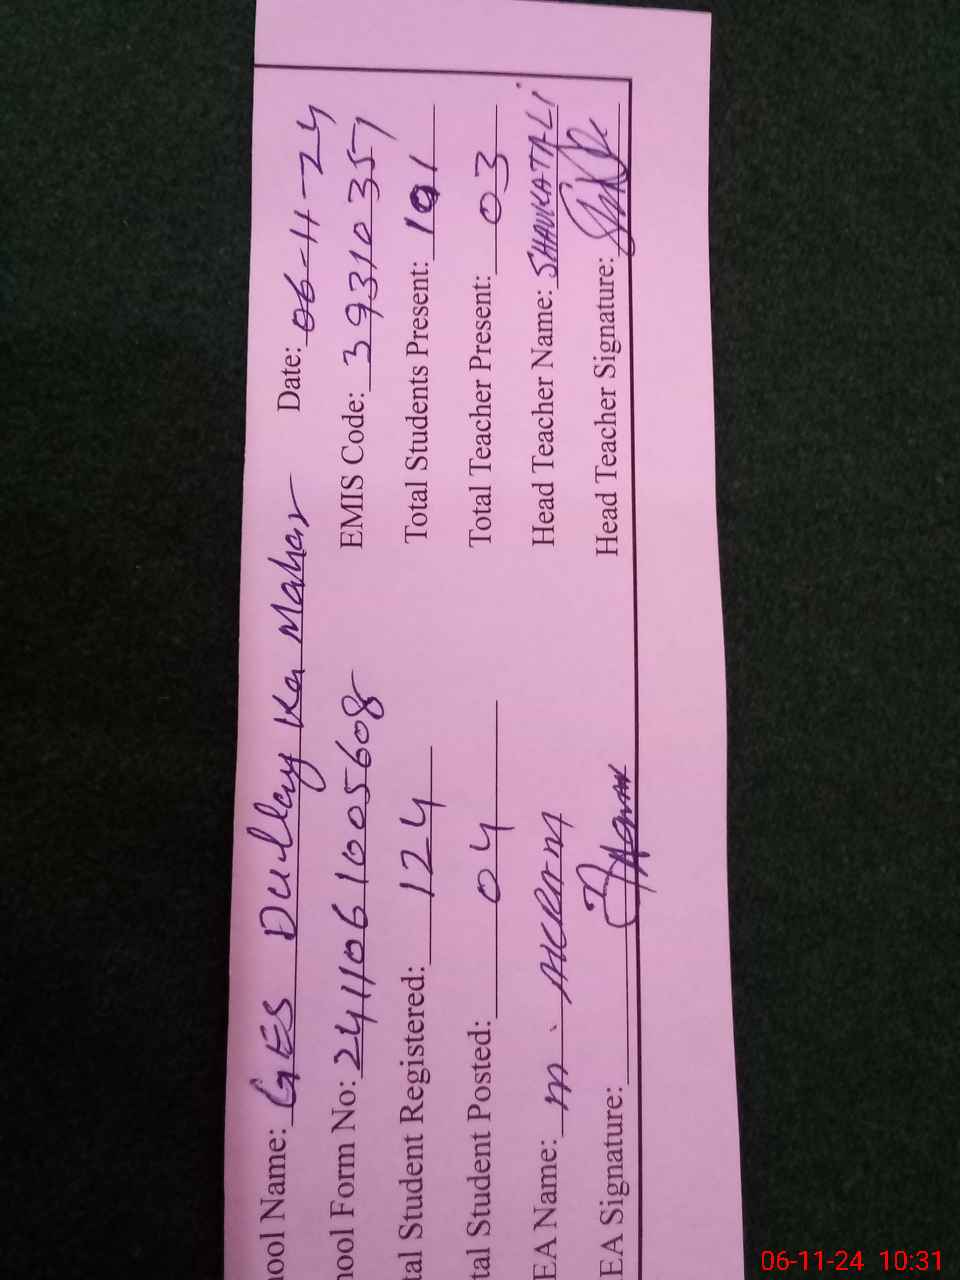 hool Name: GES Dullay Ka Mahar Date: 06-11-24
hool Form No: 2411061005608 EMIS Code: 39310357
tal Student Registered: 124 Total Students Present: 101
tal Student Posted: 04 Total Teacher Present: 03
EA Name: M. AKRAM Head Teacher Name: SHAUKAT ALI
EA Signature: Head Teacher Signature:
06-11-24 10:31